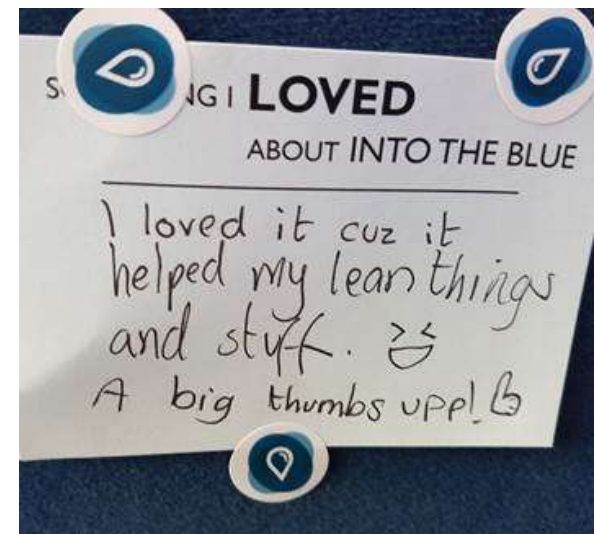 NG I LOVED
ABOUT INTO THE BLUE
I loved it cuz it
helped my lean things
and stuff.
A big thumbs upp!